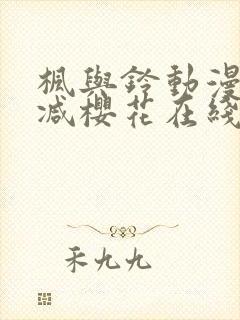 楓與鈴動漫
減櫻花在綫
禾九九